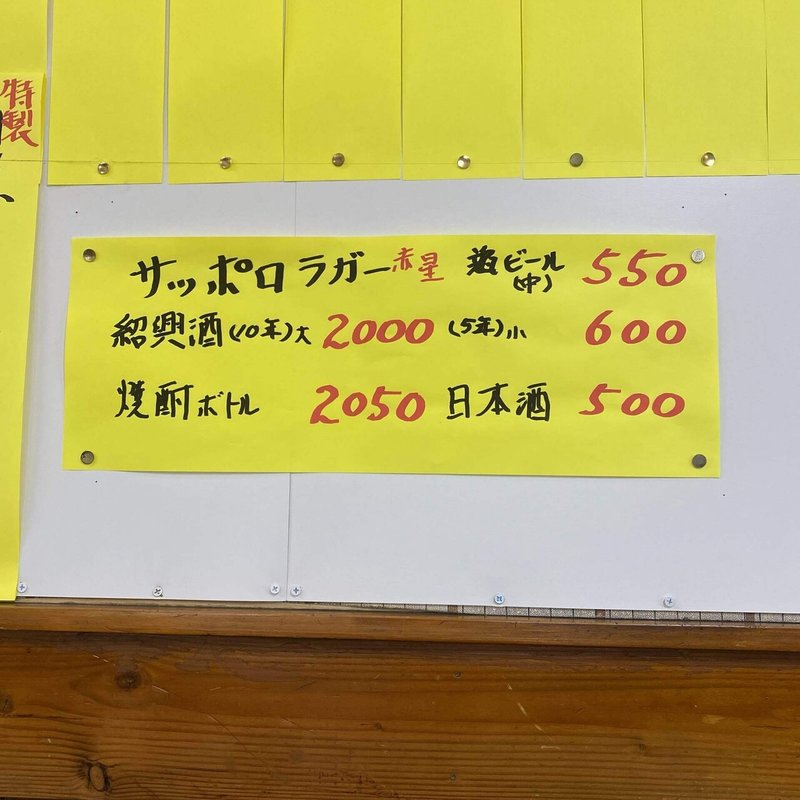 特製
サッポロラガー赤星 瓶ビール(中) 550
紹興酒(10年)大 2000 (5年)小 600
焼酎ボトル 2050 日本酒 500